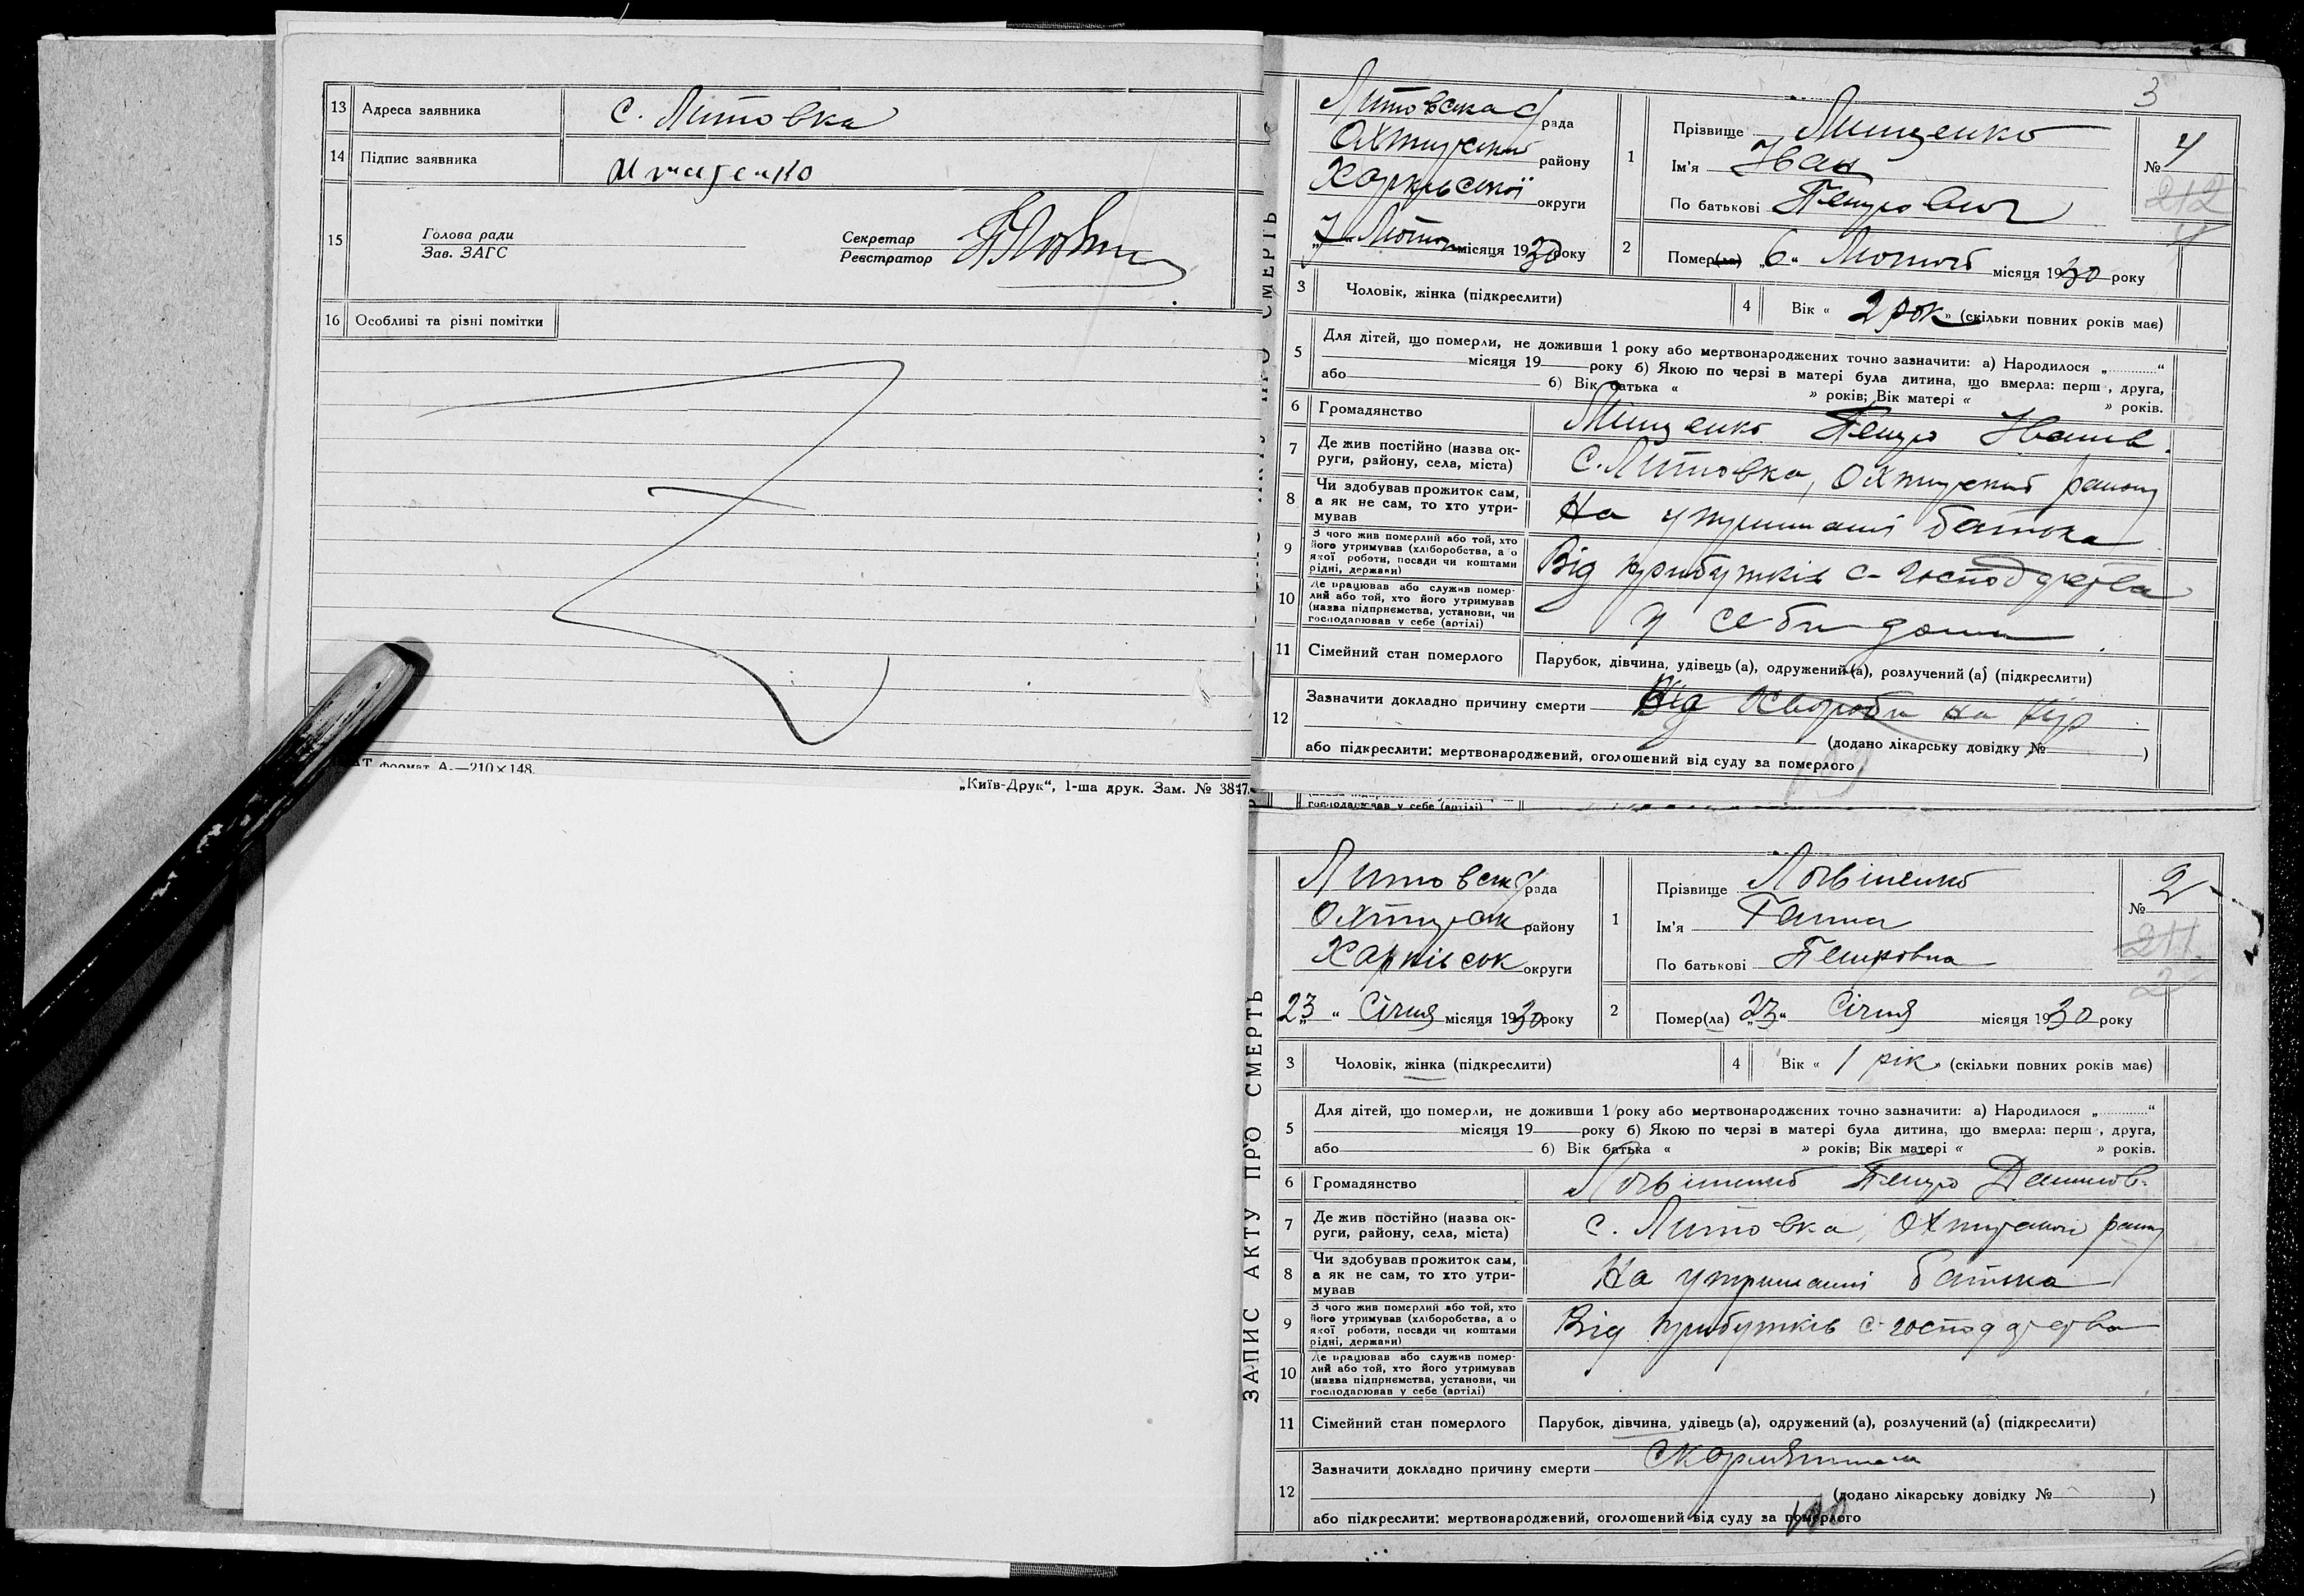 13 Адреса заявника с. Литовка
14 Підпис заявника
15 Голова ради
Зав. ЗАГС
Секретар
Реєстратор
16 Особливі та різні помітки
АТ формат А.—210×148.
„Київ-Друк“, 1-ша друк. Зам. № 3847.
3
Литовська рада
району
Харківської округи
„7“ Лютого місяця 1930 року
1 Прізвище Мищенко
Ім'я Іван
По батькові Петрович
№ 4
212
4
2 Помер(ла) „6“ Лютого місяця 1930 року
3 Чоловік, жінка (підкреслити)
4 Вік « 2 рок » (скільки повних років має)
5 Для дітей, що померли, не доживши 1 року або мертвонароджених точно зазначити: а) Народилося „............“
місяця 19 року б) Якою по черзі в матері була дитина, що вмерла: перш , друга,
або б) Вік батька « » років; Вік матері « » років.
6 Громадянство Мищенко Петро Іванів.
7 Де жив постійно (назва ок-
руги, району, села, міста) с. Литовка, району
8 Чи здобував прожиток сам,
а як не сам, то хто утри-
мував На утриманні батька
9 З чого жив померлий або той, хто
його утримував (хліборобства, а о
якої роботи, посади чи коштами
рідні, держави) Від прибутків с-господарства
10 Де працював або служив помер-
лий або той, хто його утримував
(назва підприємства, установи, чи
господарював у себе (артілі) у себе дома
11 Сімейний стан померлого Парубок, дівчина, удівець (а), одружений (а), розлучений (а) (підкреслити)
12 Зазначити докладно причину смерти Від хвороби на кір
(додано лікарську довідку № )
або підкреслити: мертвонароджений, оголошений від суду за померлого
господарював у себе (артілі)
ЗАПИС АКТУ ПРО СМЕРТЬ
Литовськ рада
району
Харківськ округи
„23“ Січня місяця 1930 року
1 Прізвище Логвіненко
Ім'я Ганна
По батькові Петровна
№ 2
211
2
2 Помер(ла) „23“ Січня місяця 1930 року
3 Чоловік, жінка (підкреслити)
4 Вік « 1 рік » (скільки повних років має)
5 Для дітей, що померли, не доживши 1 року або мертвонароджених точно зазначити: а) Народилося „............“
місяця 19 року б) Якою по черзі в матері була дитина, що вмерла: перш , друга,
або б) Вік батька « » років; Вік матері « » років.
6 Громадянство Логвіненко Петро Данилов.
7 Де жив постійно (назва ок-
руги, району, села, міста) с. Литовка,
8 Чи здобував прожиток сам,
а як не сам, то хто утри-
мував На утриманні батька
9 З чого жив померлий або той, хто
його утримував (хліборобства, а о
якої роботи, посади чи коштами
рідні, держави) Від прибутків с-господарства
10 Де працював або служив помер-
лий або той, хто його утримував
(назва підприємства, установи, чи
господарював у себе (артілі)
11 Сімейний стан померлого Парубок, дівчина, удівець (а), одружений (а), розлучений (а) (підкреслити)
12 Зазначити докладно причину смерти
(додано лікарську довідку № )
або підкреслити: мертвонароджений, оголошений від суду за померлого